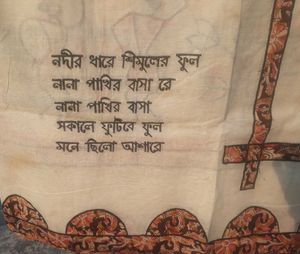 নদীর ধারে শিমুলের ফুল
নানা পাখির বাসা রে
নানা পাখির বাসা
সকালে ফুটিবে ফুল
মনে ছিলো আশারে